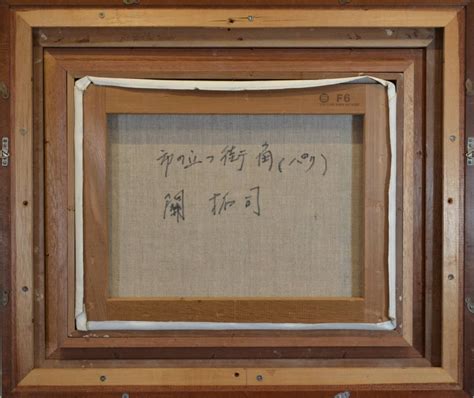 F6
市の立つ街角(パリ)
關 拓司